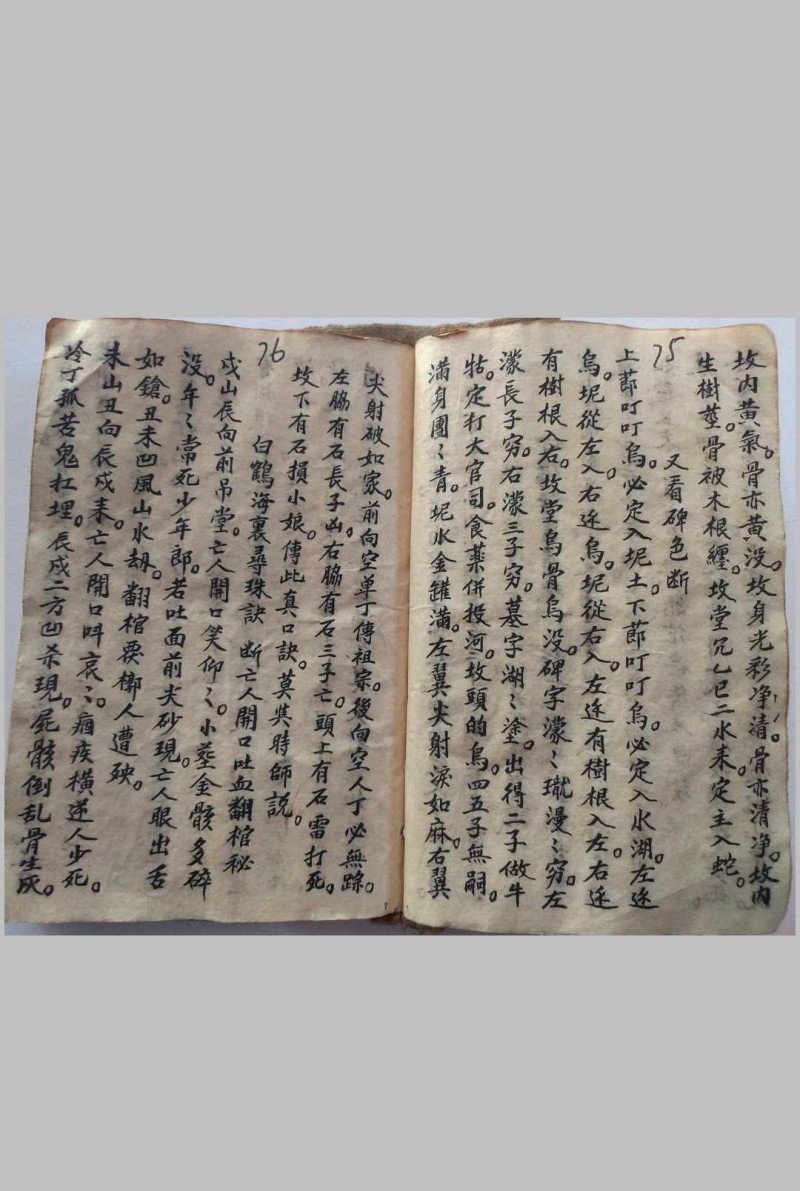 坟内黄氣。骨亦黄没。坟身光彩净清。骨亦清净。坟内
生樹莖。骨被木根纏。坟堂冗乙巳二水耒。定主入蛇。
75
又看碑色断
上莭叮叮烏。必定入坭土。下莭叮叮烏。必定入水湖。左迯
烏。坭從左入。右迯烏。坭從右入。左迯有樹根入左。右迯
有樹根入右。坟堂烏骨烏没。碑字濛〻瓏漫〻窮。左
濛長子窮。右濛三子窮。墓字湖〻塗。出得二子做牛
牯。定打大官司。食薬併投河。坟頭的烏。四五子無嗣。
滿身團〻青。坭水金罐滿。左翼尖射淚如麻。右翼
尖射破如家。前向空单丁傳祖宗。後向空人丁必無踪。
左脇有石長子凶。右脇有石三子亡。頭上有石雷打死。
坟下有石損小娘。傳此真口訣。莫與時師説。
76
白鶴海裏尋珠訣 断亡人開口吐血翻棺秘
戍山辰向前吊堂。亡人開口笑仰〻。小莖金骸多碎
没。年〻常死少年郎。若吐面前尖砂現。亡人眼出舌
如鎗。丑未凹風山水刼。翻棺票槨人遭殃。
未山丑向辰戍耒。亡人開口呌哀〻。痼疾橫逆人少死。
冷丁孤苦鬼扛埋。辰戍二方凹杀現。屍骸倒乱骨生灰。